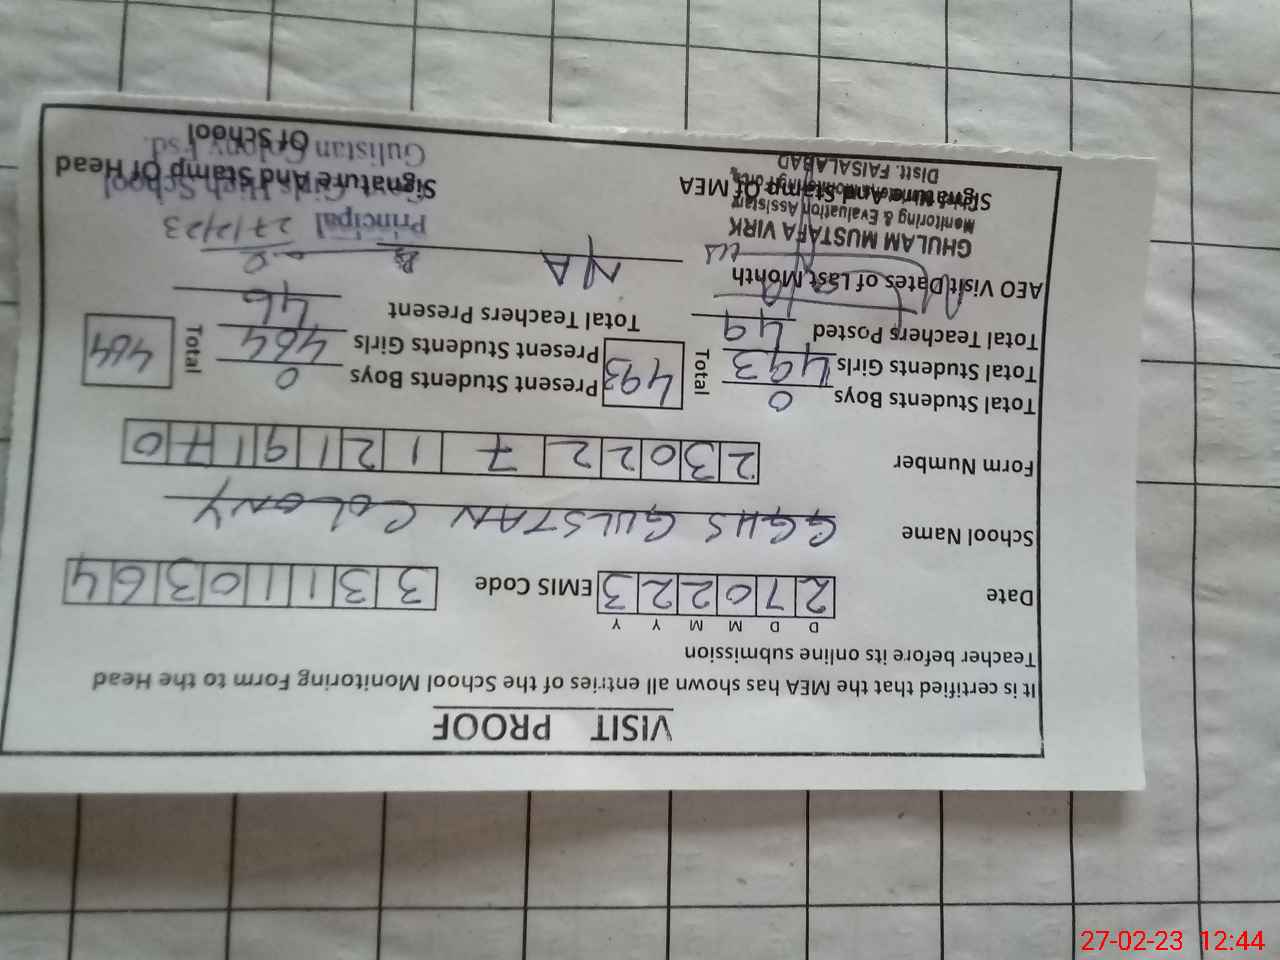 VISIT PROOF
It is certified that the MEA has shown all entries of the School Monitoring Form to the Head
Teacher before its online submission
D D M M Y Y
Date 270223 EMIS Code 33110364
School Name GGHS GULSTAN COLONY
Form Number 2302271219170
Total Students Boys 0 Present Students Boys 0
Total Students Girls 493 Total 493 Present Students Girls 464 Total 464
Total Teachers Posted 49 Total Teachers Present 46
AEO Visit Dates of Last Month NA
GHULAM MUSTAFA VIRK
Monitoring & Evaluation Assistant
Distt. FAISALABAD
Signature And Stamp Of MEA
Principal 27/2/23
Girls High School
Gulistan Colony Fsd.
Signature And Stamp Of Head
Of School
27-02-23 12:44